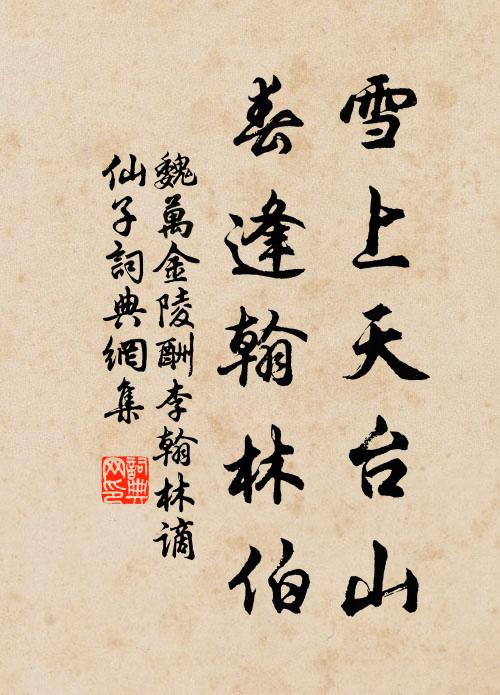 雪上天台山
春逢翰林伯
魏萬金陵酬李翰林謫
仙子詞典網集
詞典
网印